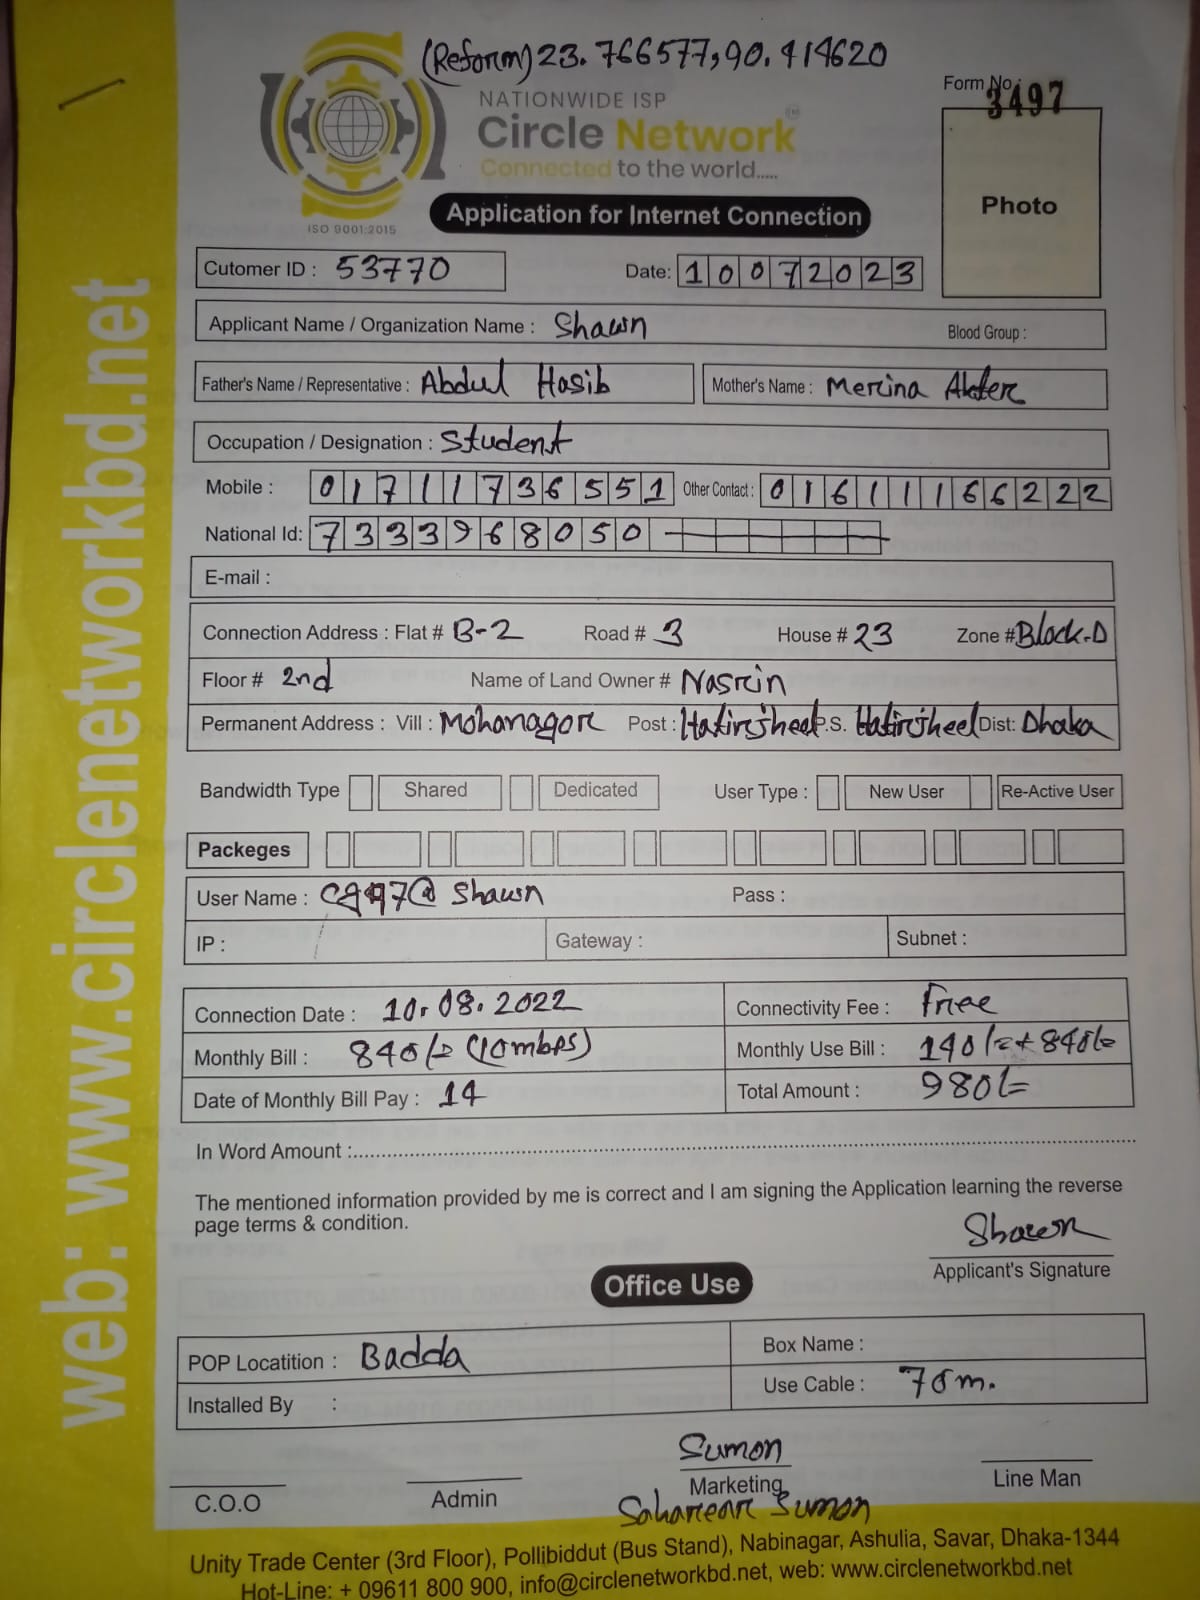 (Reform) 23.766577,90.414620
Form No: 3497
NATIONWIDE ISP
Circle Network
Connected to the world.....
ISO 9001:2015
Photo
Application for Internet Connection
Cutomer ID : 53770 Date: 10072023
Applicant Name / Organization Name : Shawn Blood Group :
Father's Name / Representative : Abdul Hasib Mother's Name : Merina Akter
Occupation / Designation : Student
Mobile : 01711736551 Other Contact : 01611166222
National Id: 7333968050
E-mail :
Connection Address : Flat # B-2 Road # 3 House # 23 Zone # Block-D
Floor # 2nd Name of Land Owner # Nasrin
Permanent Address : Vill : Mohanagor Post : Hatirjheel P.S. Hatirjheel Dist: Dhaka
Bandwidth Type Shared Dedicated User Type : New User Re-Active User
Packeges
User Name : @ Shawn Pass :
IP : Gateway : Subnet :
Connection Date : 10.08.2022 Connectivity Fee : Free
Monthly Bill : 840/= (10mbps) Monthly Use Bill : 140/=+840/=
Date of Monthly Bill Pay : 14 Total Amount : 980/=
In Word Amount :
The mentioned information provided by me is correct and I am signing the Application learning the reverse
page terms & condition.
Shawn
Applicant's Signature
Office Use
POP Locatition : Badda Box Name :
Installed By : Use Cable : 70m.
Sumon
C.O.O Admin Marketing Line Man
Sumon
Unity Trade Center (3rd Floor), Pollibiddut (Bus Stand), Nabinagar, Ashulia, Savar, Dhaka-1344
Hot-Line: + 09611 800 900, info@circlenetworkbd.net, web: www.circlenetworkbd.net
web: www.circlenetworkbd.net